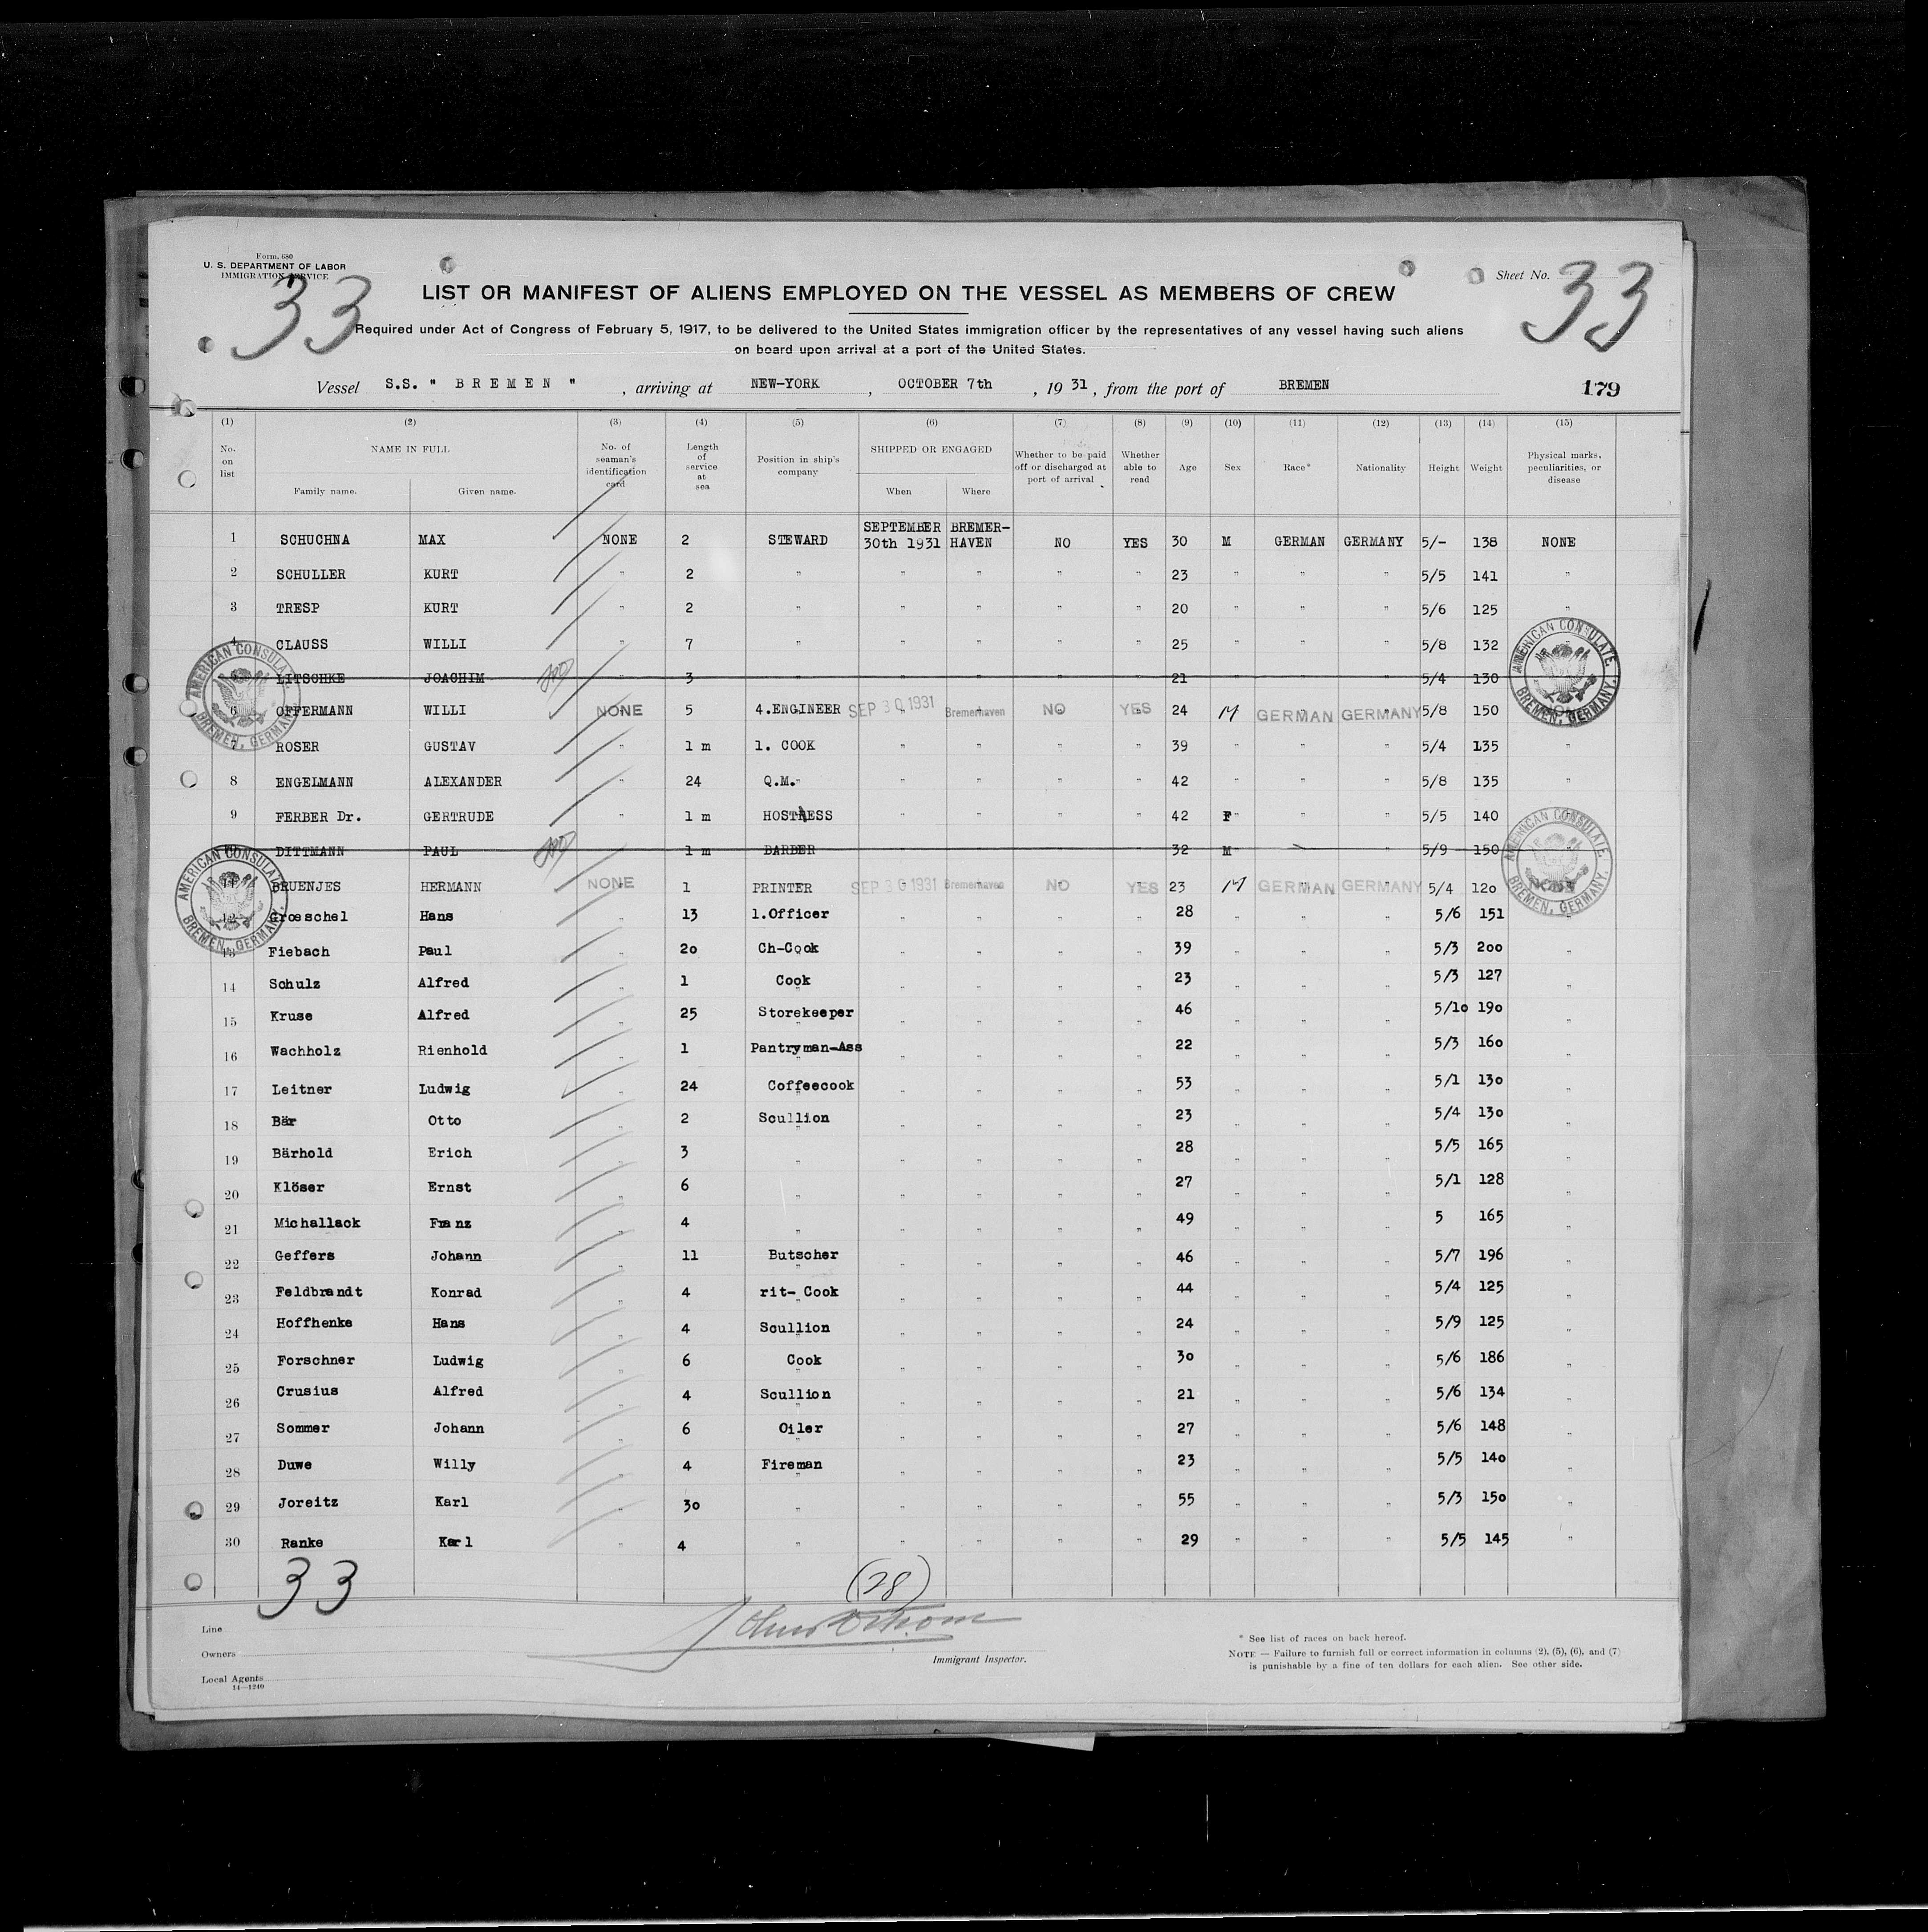 Form. 680
U. S. DEPARTMENT OF LABOR
IMMIGRATION SERVICE
33
Sheet No. 33
LIST OR MANIFEST OF ALIENS EMPLOYED ON THE VESSEL AS MEMBERS OF CREW
Required under Act of Congress of February 5, 1917, to be delivered to the United States immigration officer by the representatives of any vessel having such aliens
on board upon arrival at a port of the United States.
Vessel S.S. " BREMEN " , arriving at NEW-YORK , OCTOBER 7th , 19 31 , from the port of BREMEN 179
(1) (2) (3) (4) (5) (6) (7) (8) (9) (10) (11) (12) (13) (14) (15)
No. on list NAME IN FULL Family name. Given name. No. of seaman's identification card Length of service at sea Position in ship's company SHIPPED OR ENGAGED When Where Whether to be paid off or discharged at port of arrival Whether able to read Age Sex Race* Nationality Height Weight Physical marks, peculiarities, or disease
1 SCHUCHNA MAX NONE 2 STEWARD SEPTEMBER 30th 1931 BREMER-HAVEN NO YES 30 M GERMAN GERMANY 5/- 138 NONE
2 SCHULLER KURT " 2 " " " " " 23 " " " 5/5 141 "
3 TRESP KURT " 2 " " " " " 20 " " " 5/6 125 "
4 CLAUSS WILLI " 7 " " " " " 25 " " " 5/8 132
5 LITSCHKE JOACHIM " 3 " " " " " 21 " " " 5/4 130
6 OFFERMANN WILLI NONE 5 4.ENGINEER SEP 30 1931 Bremerhaven NO YES 24 M GERMAN GERMANY 5/8 150
7 ROSER GUSTAV " 1 m 1. COOK " " " " 39 " " " 5/4 135 "
8 ENGELMANN ALEXANDER " 24 Q.M. " " " " 42 " " " 5/8 135 "
9 FERBER Dr. GERTRUDE " 1 m HOSTRESS " " " " 42 F " " 5/5 140
DITTMANN PAUL 1 m BARBER " " " " 32 M " 5/9 150
11 BRUENJES HERMANN NONE 1 PRINTER SEP 30 1931 Bremerhaven NO YES 23 M GERMAN GERMANY 5/4 120 NONE
12 Groeschel Hans " 13 1.Officer " " " " 28 " " " 5/6 151 "
13 Fiebach Paul " 20 Ch-Cook " " " " 39 " " " 5/3 200 "
14 Schulz Alfred " 1 Cook " " " " 23 " " " 5/3 127 "
15 Kruse Alfred " 25 Storekeeper " " " " 46 " " " 5/10 190 "
16 Wachholz Rienhold " 1 Pantryman-Ass " " " " 22 " " " 5/3 160 "
17 Leitner Ludwig " 24 Coffeecook " " " " 53 " " " 5/1 130 "
18 Bär Otto " 2 Scullion " " " " 23 " " " 5/4 130 "
19 Bärhold Erich " 3 " " " " " 28 " " " 5/5 165 "
20 Klöser Ernst " 6 " " " " " 27 " " " 5/1 128 "
21 Michallack Franz " 4 " " " " " 49 " " " 5 165 "
22 Geffers Johann " 11 Butscher " " " " 46 " " " 5/7 196 "
23 Feldbrandt Konrad " 4 rit- Cook " " " " 44 " " " 5/4 125 "
24 Hoffhenke Hans " 4 Scullion " " " " 24 " " " 5/9 125 "
25 Forschner Ludwig " 6 Cook " " " " 30 " " " 5/6 186 "
26 Crusius Alfred " 4 Scullion " " " " 21 " " " 5/6 134 "
27 Sommer Johann " 6 Oiler " " " " 27 " " " 5/6 148 "
28 Duwe Willy " 4 Fireman " " " " 23 " " " 5/5 140 "
29 Joreitz Karl " 30 " " " " " 55 " " " 5/3 150 "
30 Ranke Karl " 4 " " " " " 29 " " " 5/5 145 "
AMERICAN CONSULATE. BREMEN, GERMANY.
AMERICAN CONSULATE. BREMEN, GERMANY.
AMERICAN CONSULATE. BREMEN, GERMANY.
AMERICAN CONSULATE. BREMEN, GERMANY.
33
(28)
Line
Owners
Local Agents
14—1240
Immigrant Inspector.
* See list of races on back hereof.
NOTE — Failure to furnish full or correct information in columns (2), (5), (6), and (7)
is punishable by a fine of ten dollars for each alien. See other side.